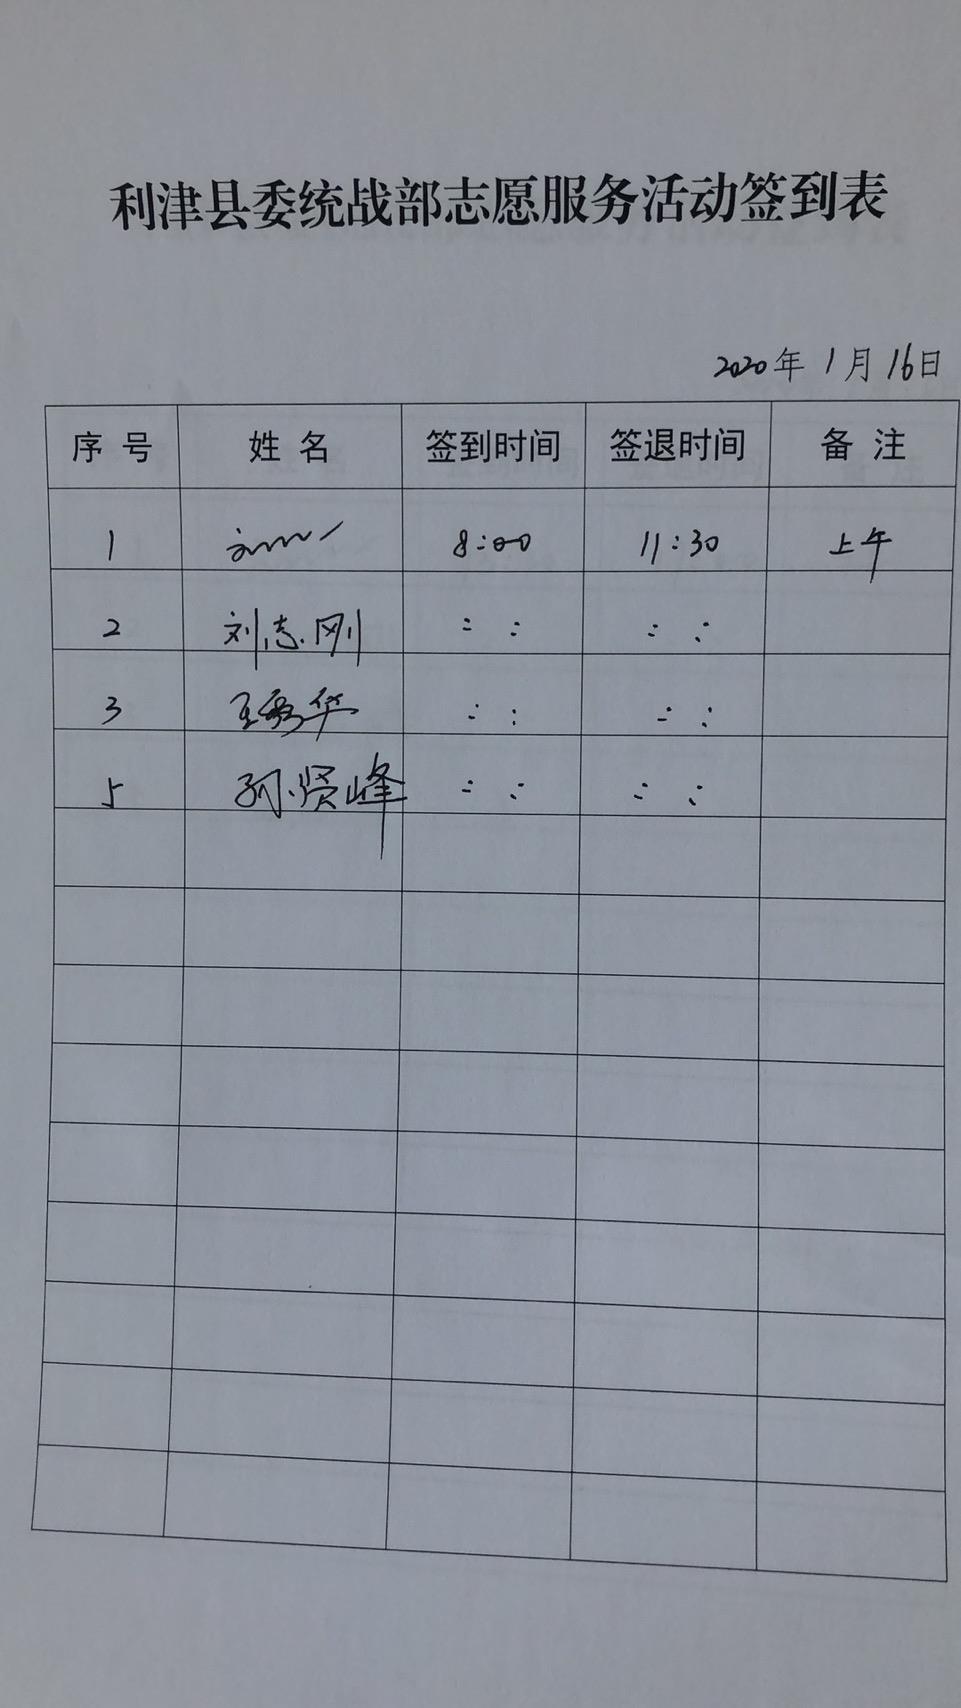 利津县委统战部志愿服务活动签到表
2020年1月16日
序号 姓名 签到时间 签退时间 备注
1 8:00 11:30 上午
2 刘志刚 : : : :
3 王秀华 : : : :
5 孙贤峰 : : : :